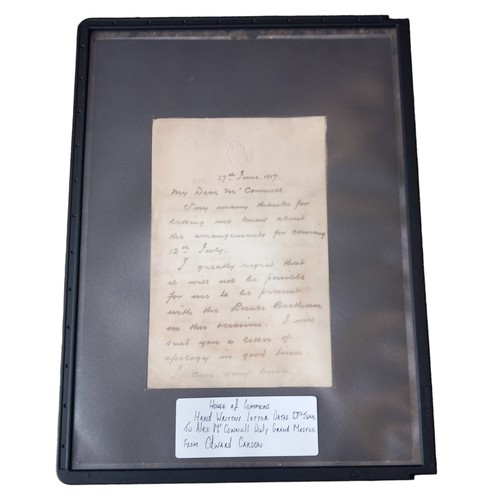 27th June, 1917
My Dear McConnell
Very many thanks for
letting me know about
the arrangements for coming
12th July.
I greatly regret that
it will not be possible
for me to be present
with the Brethren
on this occasion. I will
send you a letter of
apology in good time
I am very busy.
House of Commons
Hand Written Letter Dated 27th June
To Alex McConnell Dubly Grand Master
From Edward Carson